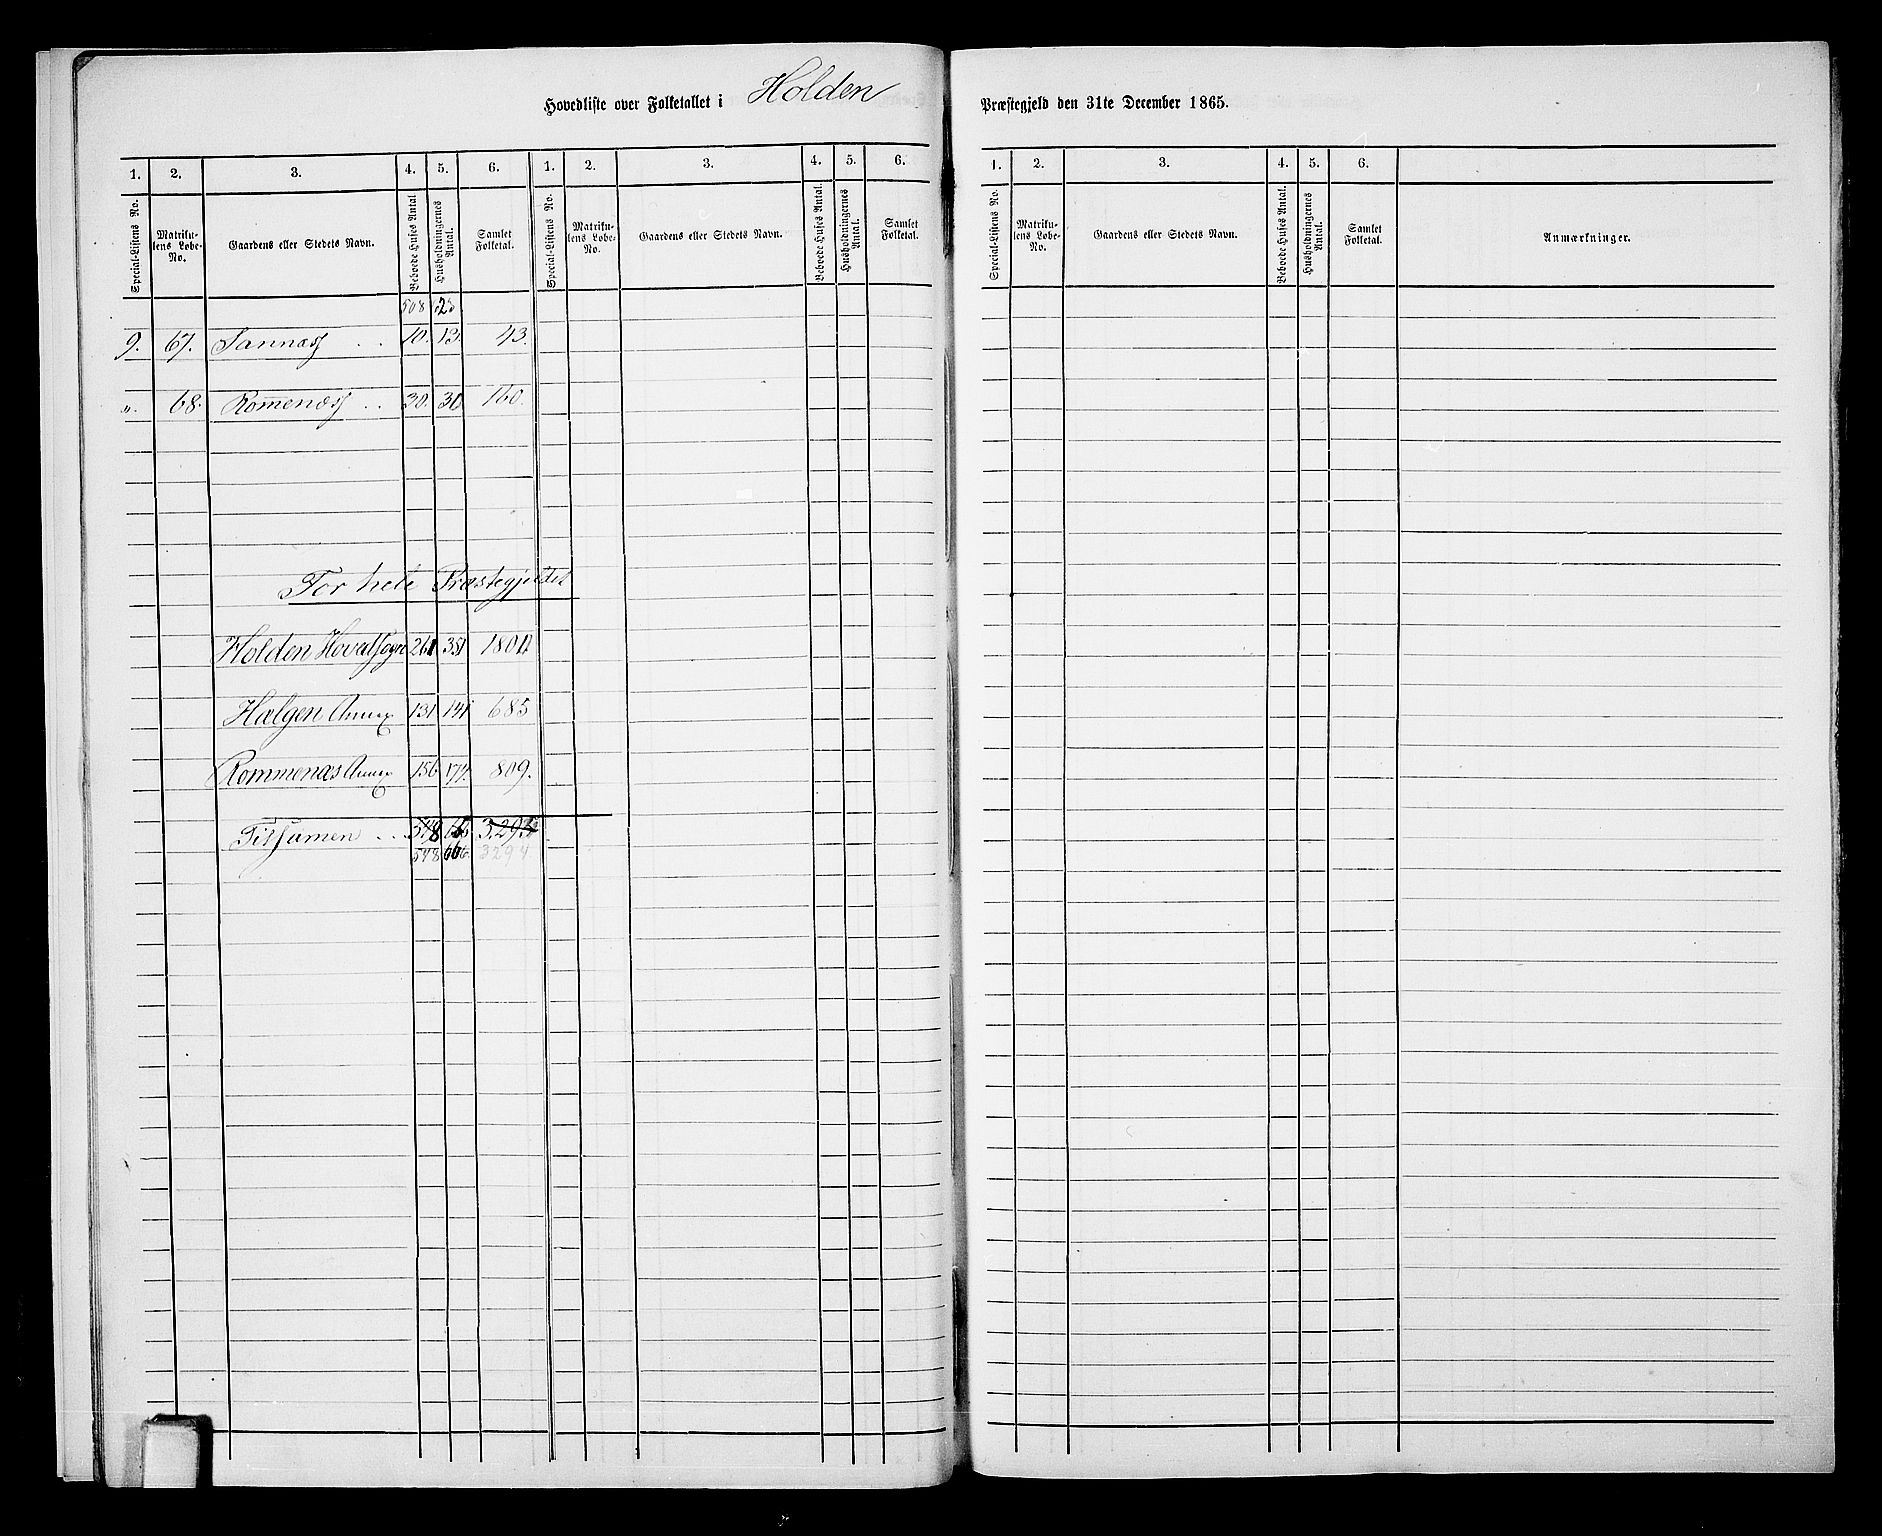 Hovedliste over Folketallet i Holden Præstegjeld den 31te December 1865.
1. 2. 3. 4. 5. 6. 1. 2. 3. 4. 5. 6. 1. 2. 3. 4. 5. 6.
Special-Listens No. Matriku-lens Løbe-No. Gaardens eller Stedets Navn. Beboede Huses Antal. Husholdningernes Antal. Samlet Folketal. Special-Listens No. Matriku-lens Løbe-No. Gaardens eller Stedets Navn. Beboede Huses Antal. Husholdningernes Antal. Samlet Folketal. Special-Listens No. Matriku-lens Løbe-No. Gaardens eller Stedets Navn. Beboede Huses Antal. Husholdningernes Antal. Samlet Folketal. Anmærkninger.
508
9. 67. Sannæs . . 10. 13. 43.
". 68. Romenæs . . 30. 30 160.
For hele Præstegjeldet
Holden Hovedsogn 261 351 1801
Hælgen Annex 131 141 685
Rommenæs Annex 156 177. 809.
Tilsamen . . 548
548 3294